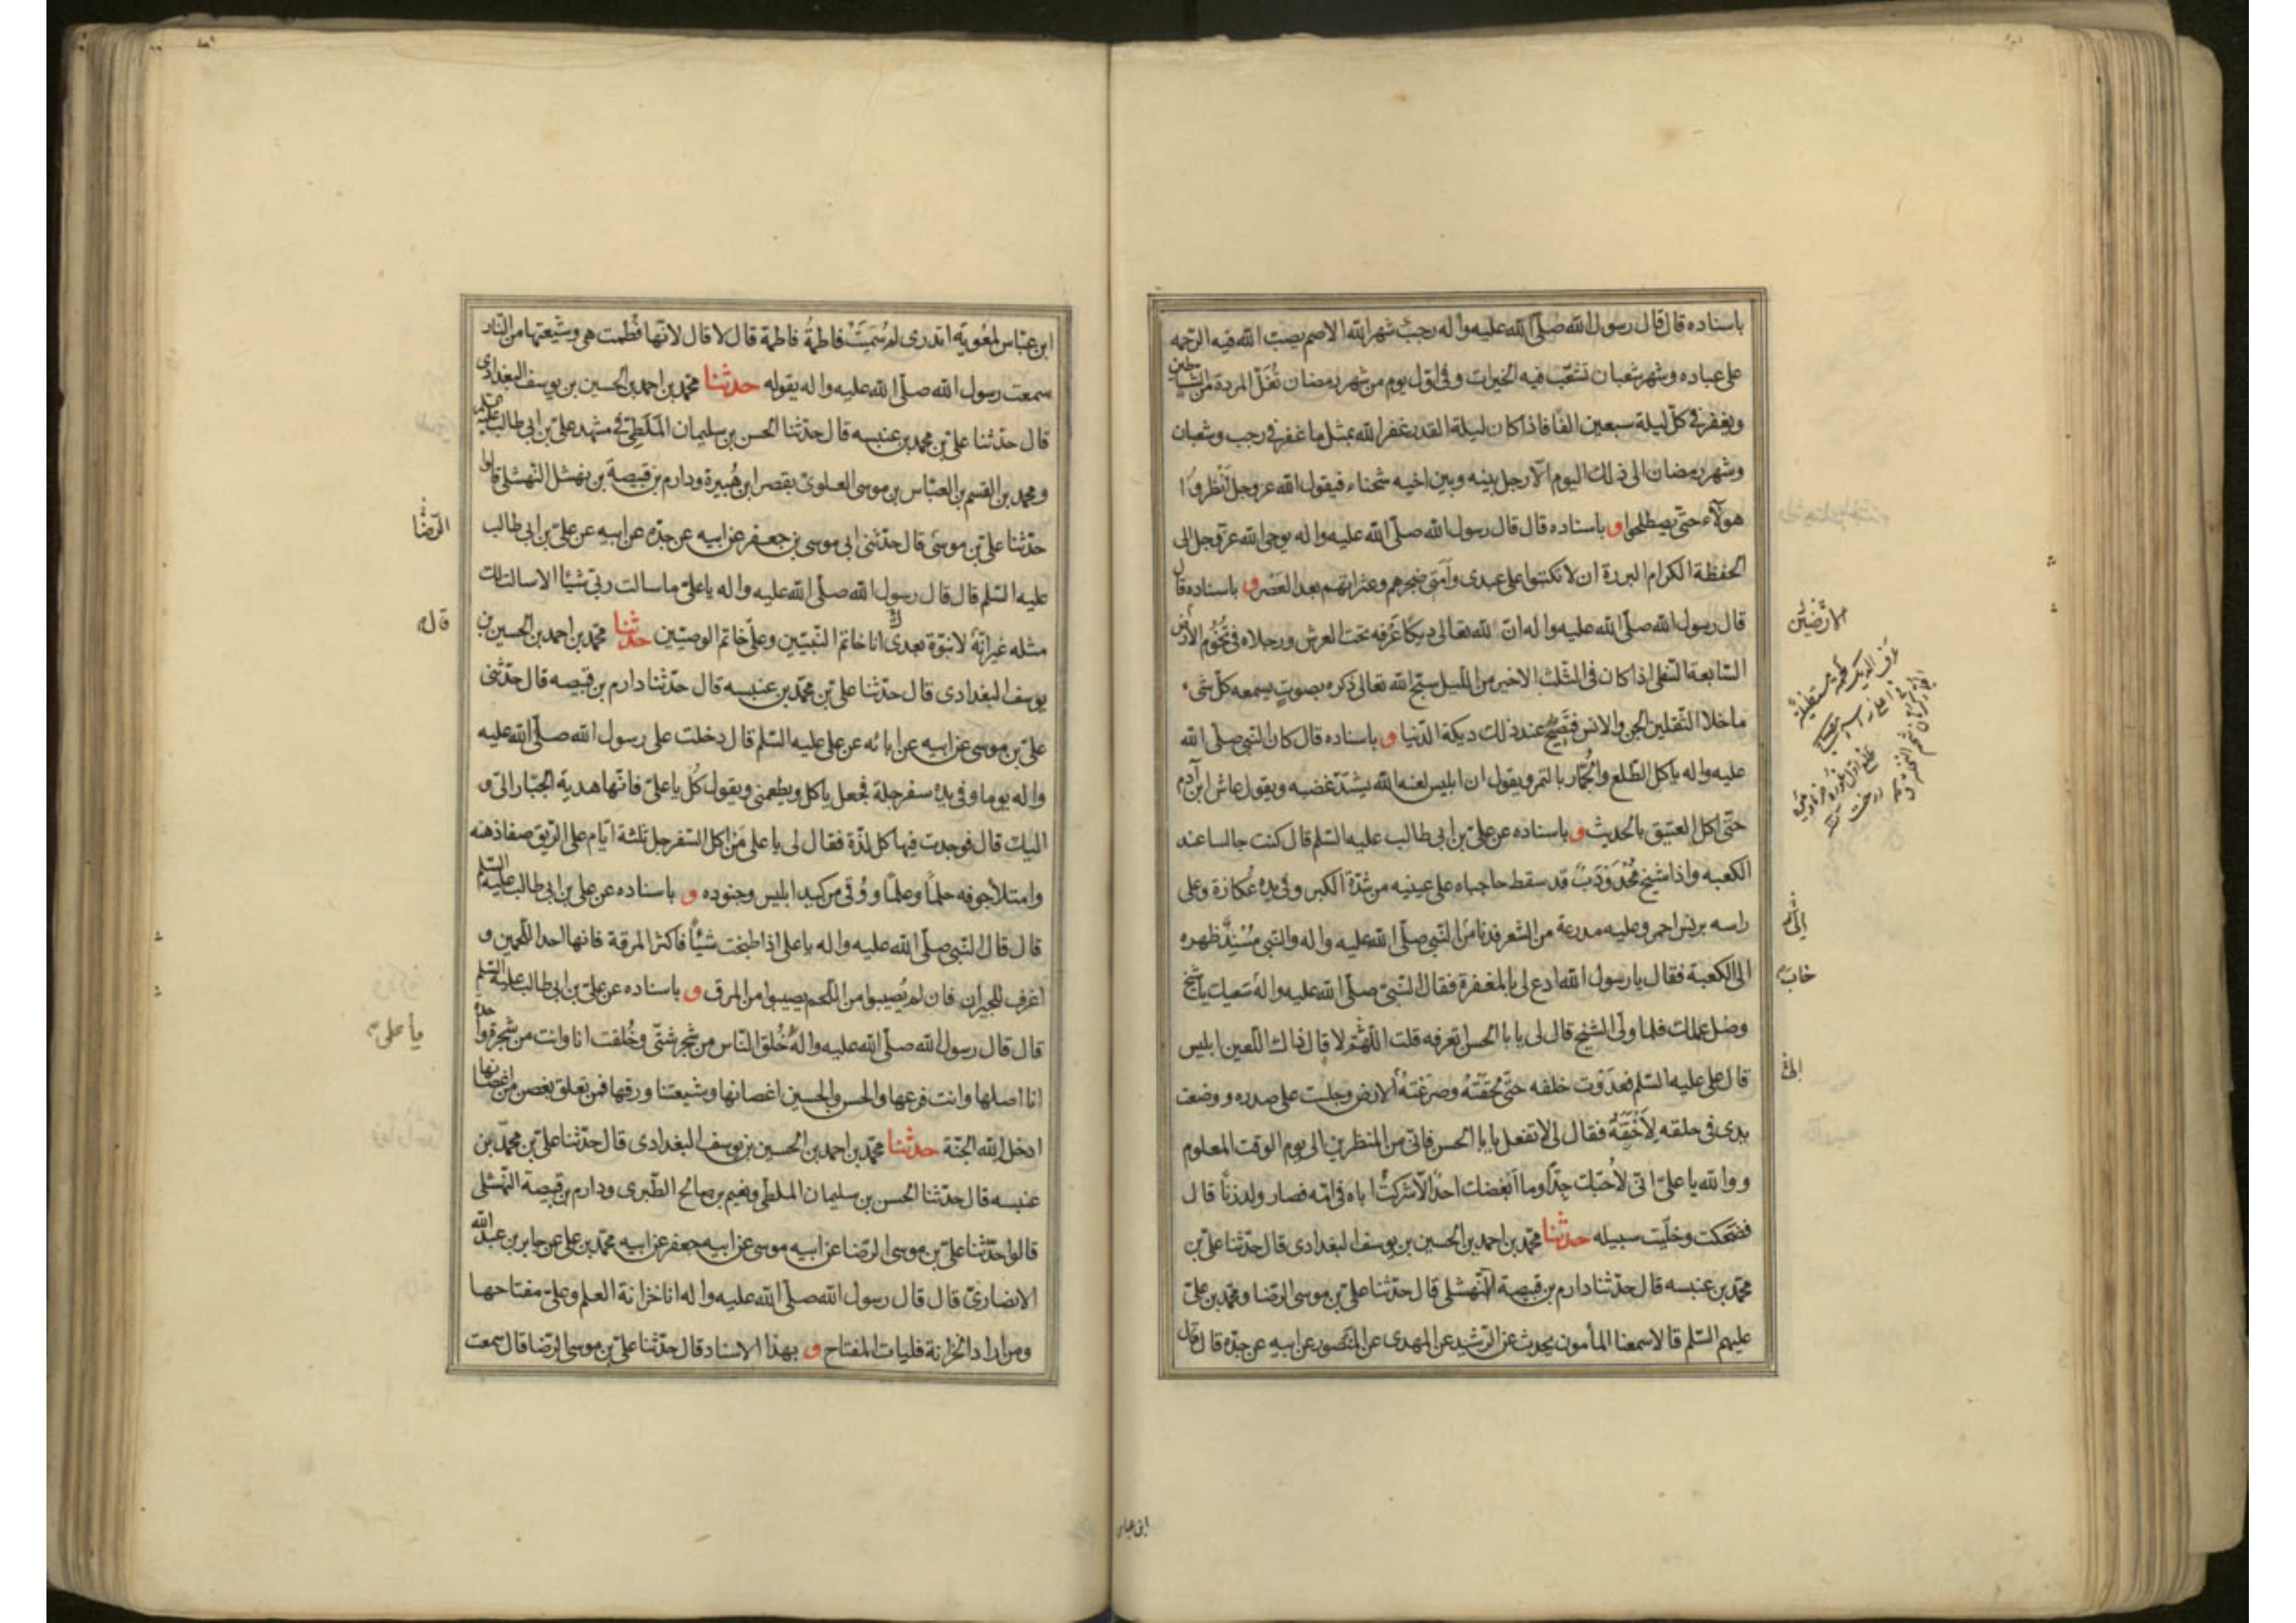 باسناده قال قال رسول الله صلّى الله عليه واله رجب شهر الله الاصم يصبّ الله فيه الرحمة
على عباده وشهر شعبان تشعّب فيه الخيرات وفي اوّل يوم من شهر رمضان تُغَلّ المردة من الشياطين
ويغفر في كلّ ليلة سبعين الفا فاذا كان ليلة القدر غفر الله بمثل ما غفر في رجب وشعبان
وشهر رمضان الى ذلك اليوم الّا رجل بينه وبين اخيه شحناء فيقول الله عز وجل اَنْظروا
هولاء حتّى يصطلحوا و باسناده قال قال رسول الله صلّى الله عليه واله يوحى الله عزّ وجل الى
الحفظة الكرام البررة ان لا تكتبوا على عبدى وأمتى ضجرهم وعثراتهم بعد العَصْر و باسناده قال
قال رسول الله صلّى الله عليه واله انّ لله تعالى ديكًا عُرْفه تحت العرش ورجلاه فى تُخُوم الارض
السّابعة السّفلى اذا كان فى الثّلث الاخير من الليل سبّح الله تعالى ذكره بصوتٍ يسمعه كلّ شىء
ماخلا الثّقلين الجن والانس فتَصِيح عند ذلك ديكة الدّنيا و باسناده قال كان النّبى صلّى الله
عليه واله ياكل الطّلع والجُمّار بالتمر ويقول ان ابليس لعنه الله يشتدّ غضبه ويقول عاش ابن آدم
حتّى اكل العتيق بالحديث و باسناده عن علىّ بن ابى طالب عليه السّلم قال كنت جالسا عند
الكعبه واذا شيخ مُحْدَوْدَبٌ قد سقط حاجباه على عينيه من شدّة الكبر وفى يده عُكازة وعلى
راسه برنس احمر وعليه مدرعة من الشّعر فدنا من النّبى صلّى الله عليه واله والنّبى مُسْنِدٌ ظهره
الى الكعبة فقال يا رسول الله ادع لى بالمغفرة فقال النّبىّ صلّى الله عليه واله سعيك يا شيخ
وضل عملك فلما ولّى الشيخ قال لى يا با الحسن اتعرفه قلت اللّهمّ لا قال ذاك اللّعين ابليس
قال على عليه السّلم فعدَوْت خلفه حتّى لحِقْتُهُ وصرَعْتهُ الارض وجلست على صدره ووضعت
يدى فى حلقه لأخنُقَهُ فقال لى لا تفعل يا با الحسن فانّى من المنظرين الى يوم الوقت المعلوم
ووالله يا علىّ انّى لأحُبّك جِدًّا وما أبغضك احدٌ الّا شركْتُ اباه فى امّه فصار ولد زنًا قال
فضحكت وخلّيت سبيله حدثنا محمّد بن احمد بن الحسين بن يوسف البغدادى قال حدّثنا علىّ بن
محمّد بن عنبسه قال حدّثنا دارم بن قبيصة النّهشلى قال حدّثنا علىّ بن موسى الرّضا ومحمّد بن علىّ
عليهم السّلم قالا سمعنا المأمون يحدث عن الرّشيد عن المهدى عن المنصور عن ابيه عن جدّه قال قال
الارضين
إلىّ
خاب
الى
ابن عباس
ابن عبّاس لمعوية اتدرى لم سُمّيَتْ فاطمةُ فاطمة قال لا قال لانّها فُطمت هى وشيعتها من النّار
سمعت رسول الله صلّى الله عليه واله يقوله حدثنا محمّد بن احمد بن الحسين بن يوسف البغدادى
قال حدّثنا علىّ بن محمد بن عنبسه قال حدّثنا الحسن بن سليمان المَلَطىّ فى مشهد علىّ بن ابى طالب عليه السلم
ومحمد بن القسم بن العبّاس بن موسى العلوىّ بقصر ابن هُبيرة ودارم بن قبيصة بن نهشل النّهشلى قالوا
حدّثنا علىّ بن موسى قال حدّثنى ابى موسى بن جعفر عن ابيه عن جدّه عن ابيه عن علىّ بن ابى طالب
عليه السّلم قال قال رسول الله صلّى الله عليه واله يا علىّ ما سالت ربّى شيئا الا سالت لك
مثله غير انّهُ لا نبوّة بعدى انا خاتم النّبيّين وعلىّ خاتم الوصيّين حدثنا محمّد بن احمد بن الحسين بن
يوسف البغدادى قال حدّثنا على بن محمّد بن عنبسه قال حدّثنا دارم بن قبيصه قال حدّثنى
علىّ بن موسى عن ابيه عن ابائه عن على عليه السّلم قال دخلت على رسول الله صلّى الله عليه
واله يوما وفى يده سفرجلة فجعل ياكل ويطعمنى ويقول كُل يا علىّ فانّها هدية الجبّار الىّ و
اليك قال فوجدت فيها كل لذّة فقال لى يا على من اكل السّفرجل ثلثة ايّام على الرّيق صفا ذهنه
وامتلأ جوفه حلمًا وعلمًا ووُقى من كيد ابليس وجنوده و باسناده عن على بن ابى طالب عليه السّلم
قال قال النّبى صلّى الله عليه واله يا على اذا طبخت شيئًا فاكثر المرقة فانها احد اللّحمين و
اغرف للجيران فان لم يُصيبوا من اللّحم يصيبوا من المرق و باسناده عن علىّ بن ابى طالب عليه السّلم
قال قال رسول الله صلّى الله عليه واله خُلق النّاس من شجر شتّى وخُلقت انا وانت من شجرة واحدة
انا اصلها وانت فرعها والحسن والحسين اغصانها وشيعتنا ورقها فمن تعلق بغصن من اغصانها
ادخل الله الجنّة حدثنا محمّد بن احمد بن الحسين بن يوسف البغدادى قال حدّثنا علىّ بن محمّد بن
عنبسه قال حدّثنا الحسن بن سليمان الملطى ونعيم بن صالح الطّبرى ودارم بن قبيصة النّهشلى
قالوا حدّثنا علىّ بن موسى الرّضا عن ابيه موسى عن ابيه جعفر عن ابيه محمّد بن على عن جابر بن عبد الله
الانصارىّ قال قال رسول الله صلّى الله عليه واله انا خزانة العلم وعلىّ مفتاحها
ومن اراد الخزانة فليات المفتاح و بهذا الاسناد قال حدّثنا علىّ بن موسى الرّضا قال سمعت
الرّضا
قال
يا على